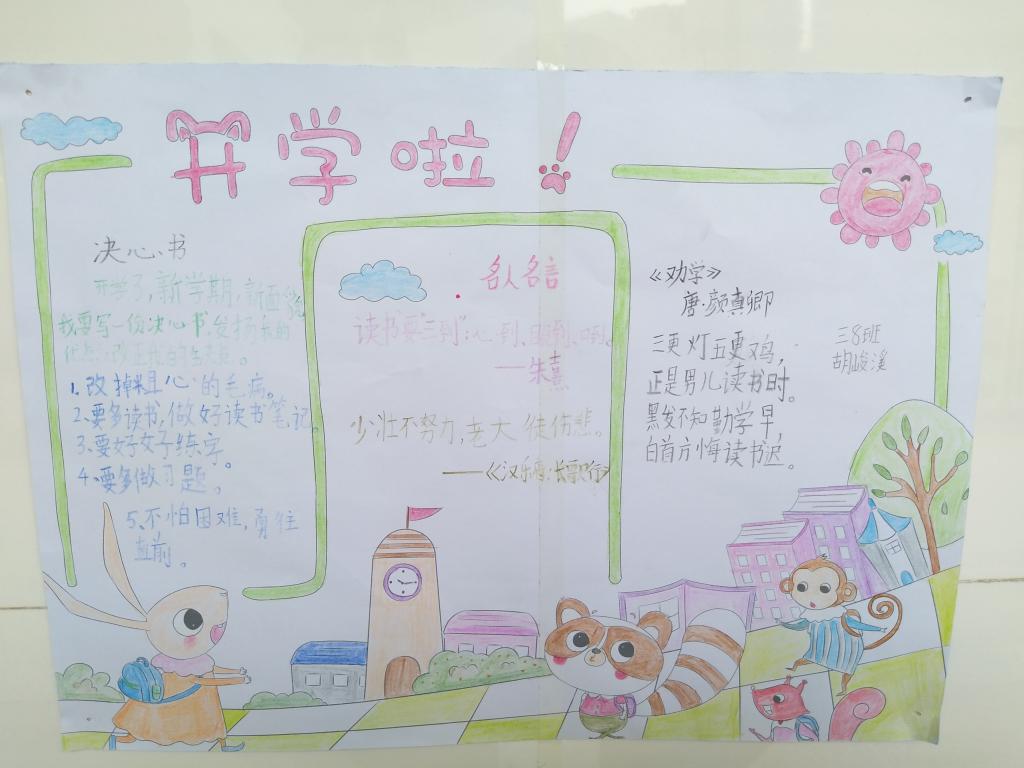 开学啦！
决心书
开学了,新学期,新面貌
我要写一份决心书,发扬我的
优点,改正我的缺点。
1.改掉粗心的毛病。
2.要多读书,做好读书笔记。
3.要好好练字。
4.要多做习题。
5.不怕困难,勇往
直前。
名人名言
读书要"三到":心到、眼到、口到。
——朱熹
少壮不努力,老大徒伤悲。
——《汉乐府·长歌行》
《劝学》
唐·颜真卿
三更灯五更鸡,
正是男儿读书时。
黑发不知勤学早,
白首方悔读书迟。
三8班
胡峻溪